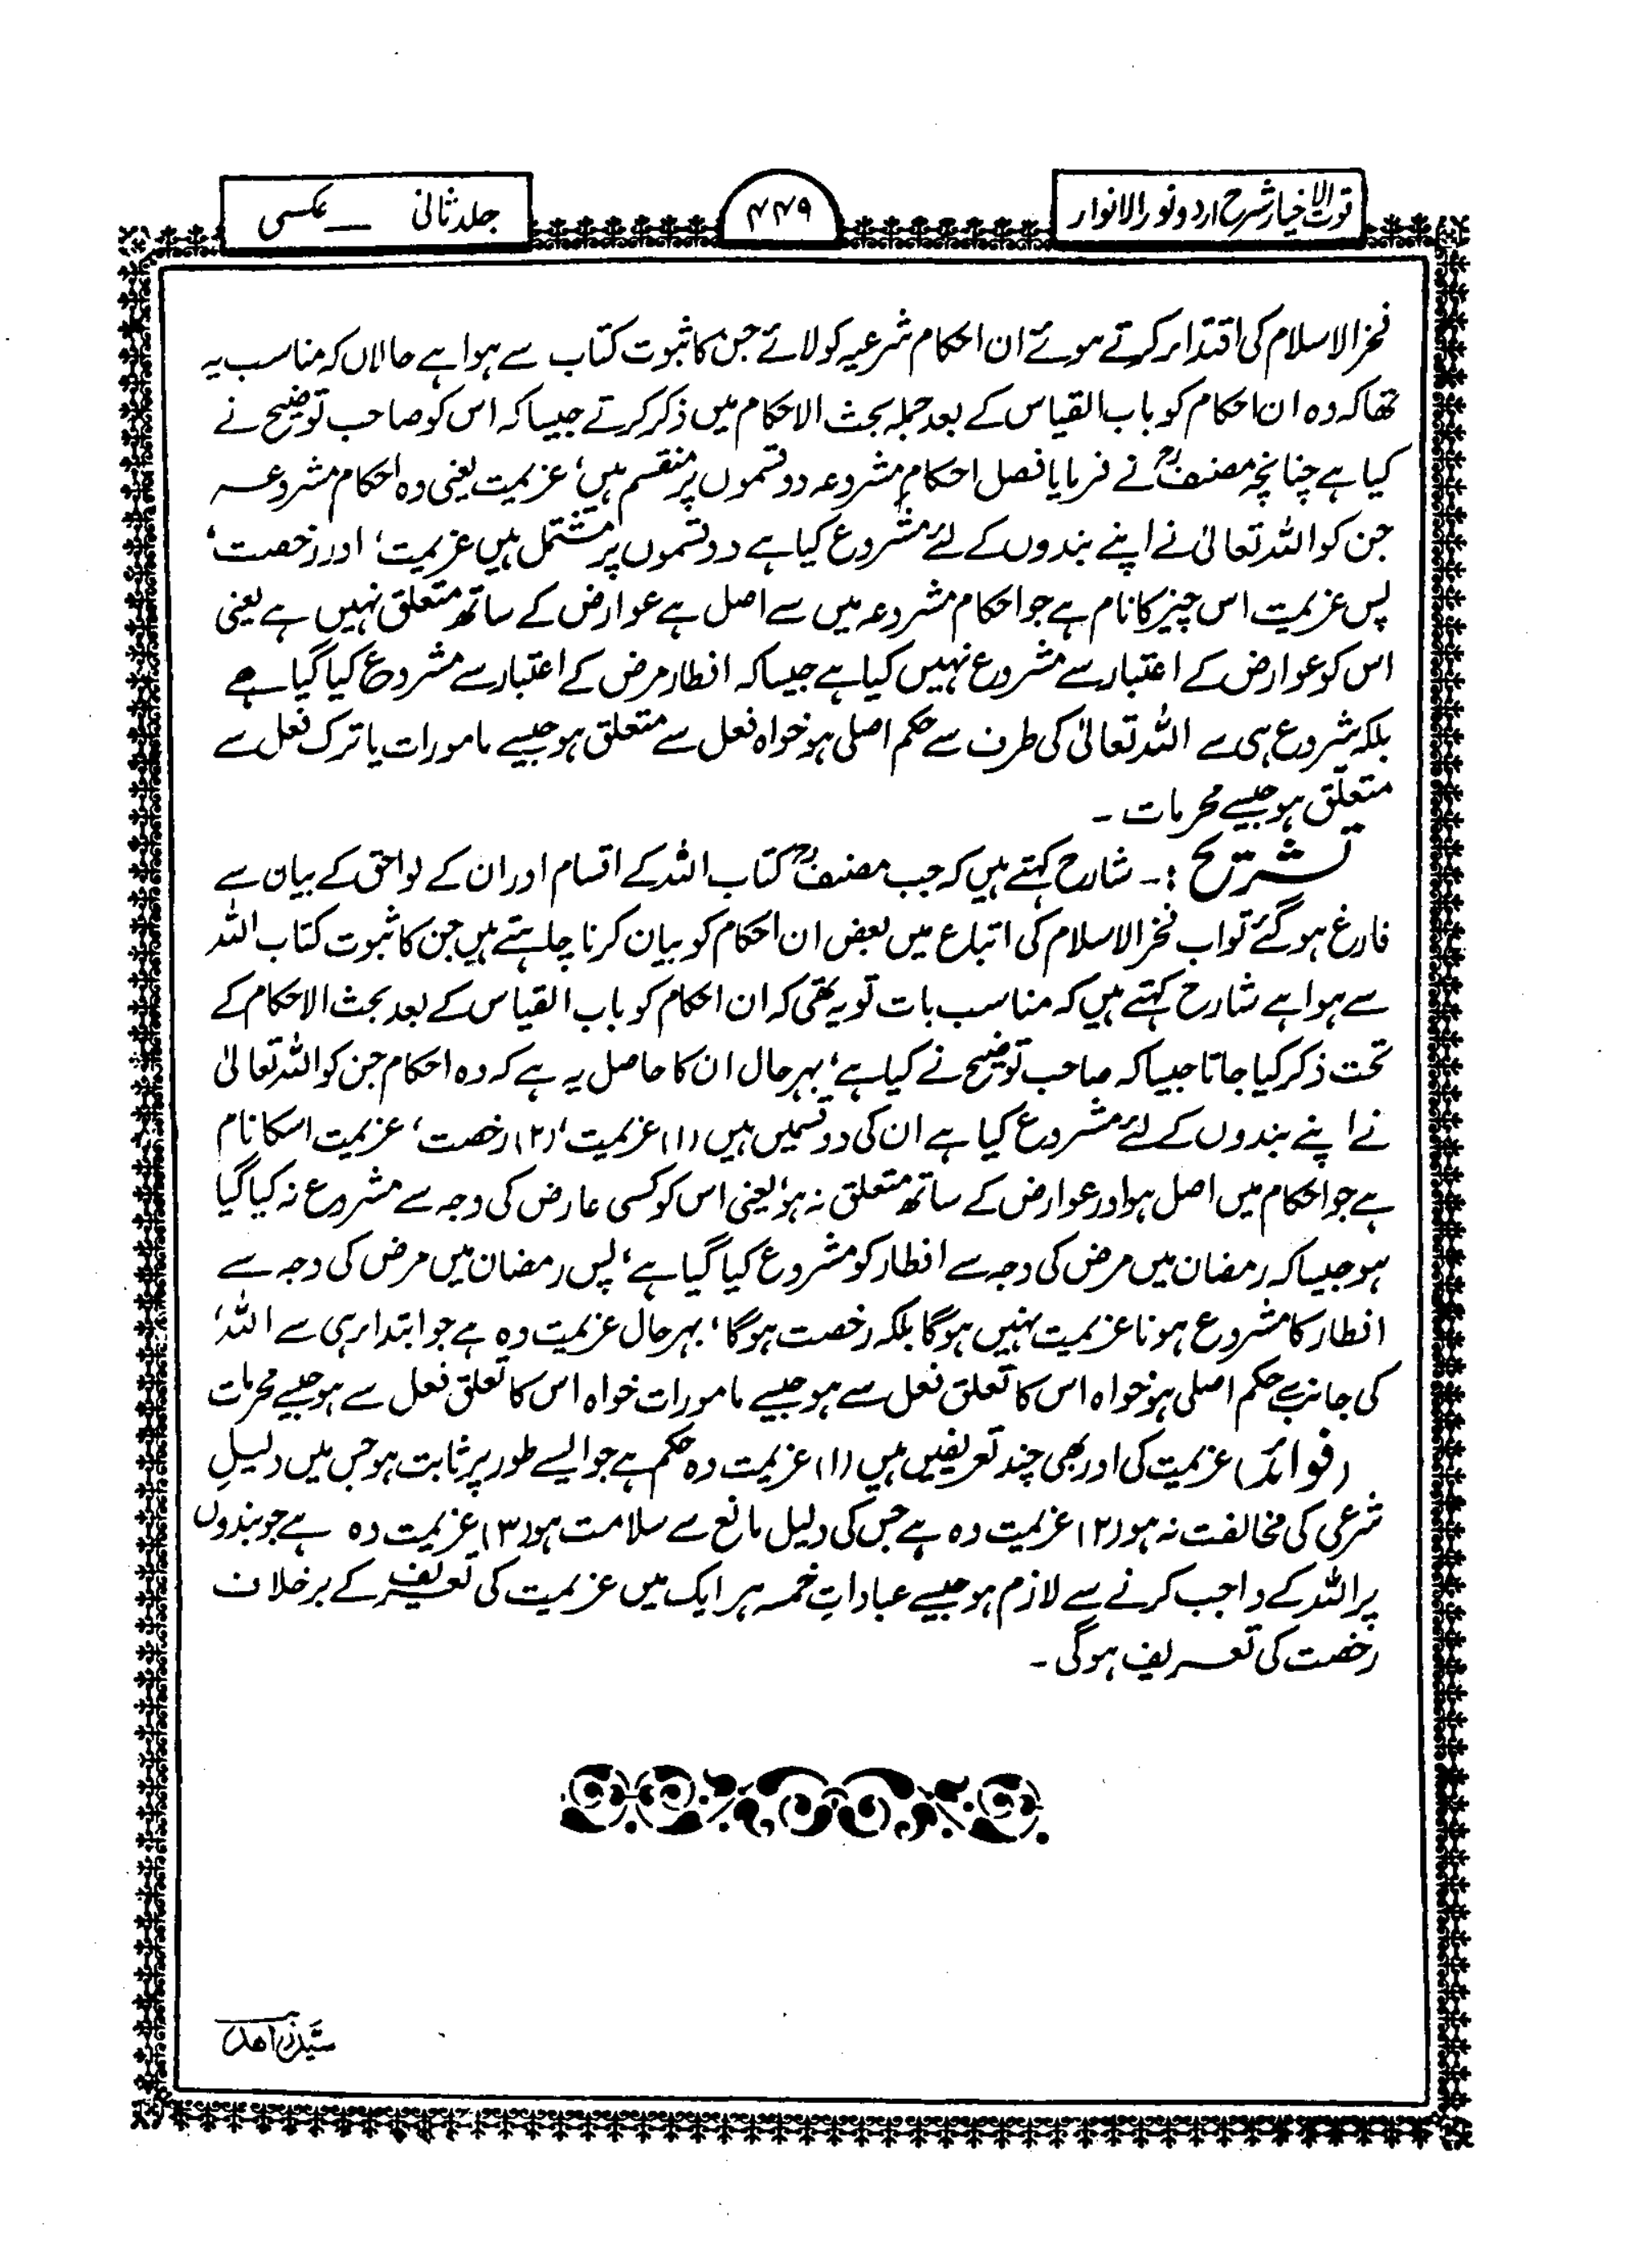 قوت الاخیار شرح اردو نور الانوار
۴۴۹
جلد ثانی — عکسی
فخر الاسلام کی اقتداء کرتے ہوئے ان احکام شرعیہ کو لائے جن کا ثبوت کتاب سے ہوا ہے حالاں کہ مناسب یہ
تھا کہ وہ ان احکام کو باب القیاس کے بعد جملہ بحث الاحکام میں ذکر کرتے جیسا کہ اس کو صاحب توضیح نے
کیا ہے چنانچہ مصنفؒ نے فرمایا فصل احکام مشروعہ دو قسموں پر منقسم ہیں، عزیمت یعنی وہ احکام مشروعہ
جن کو اللہ تعالیٰ نے اپنے بندوں کے لئے مشروع کیا ہے دو قسموں پر مشتمل ہیں عزیمت، اور رخصت،
پس عزیمت اس چیز کا نام ہے جو احکام مشروعہ میں سے اصل ہے عوارض کے ساتھ متعلق نہیں ہے یعنی
اس کو عوارض کے اعتبار سے مشروع نہیں کیا ہے جیسا کہ افطار مرض کے اعتبار سے مشروع کیا گیا ہے
بلکہ شروع ہی سے اللہ تعالیٰ کی طرف سے حکم اصلی ہو خواہ فعل سے متعلق ہو جیسے مامورات یا ترک فعل سے
متعلق ہو جیسے محرمات ۔
تشریح :۔ شارح کہتے ہیں کہ جب مصنفؒ کتاب اللہ کے اقسام اور ان کے لواحق کے بیان سے
فارغ ہو گئے تو اب فخر الاسلام کی اتباع میں بعض ان احکام کو بیان کرنا چاہتے ہیں جن کا ثبوت کتاب اللہ
سے ہوا ہے شارح کہتے ہیں کہ مناسب بات تو یہ تھی کہ ان احکام کو باب القیاس کے بعد بحث الاحکام کے
تحت ذکر کیا جاتا جیسا کہ صاحب توضیح نے کیا ہے، بہرحال ان کا حاصل یہ ہے کہ وہ احکام جن کو اللہ تعالیٰ
نے اپنے بندوں کے لئے مشروع کیا ہے ان کی دو قسمیں ہیں (۱) عزیمت، (۲) رخصت، عزیمت اسکا نام
ہے جو احکام میں اصل ہو اور عوارض کے ساتھ متعلق نہ ہو، یعنی اس کو کسی عارض کی وجہ سے مشروع نہ کیا گیا
ہو جیسا کہ رمضان میں مرض کی وجہ سے افطار کو مشروع کیا گیا ہے، پس رمضان میں مرض کی وجہ سے
افطار کا مشروع ہونا عزیمت نہیں ہوگا بلکہ رخصت ہوگا، بہرحال عزیمت وہ ہے جو ابتداء ہی سے اللہ،
کی جانب سے حکم اصلی ہو خواہ اس کا تعلق فعل سے ہو جیسے مامورات خواہ اس کا تعلق فعل سے ہو جیسے محرمات
(فوائد) عزیمت کی اور بھی چند تعریفیں ہیں (۱) عزیمت وہ حکم ہے جو ایسے طور پر ثابت ہو جس میں دلیلِ
شرعی کی مخالفت نہ ہو (۲) عزیمت وہ ہے جس کی دلیل مانع سے سلامت ہو (۳) عزیمت وہ ہے جو بندوں
پر اللہ کے واجب کرنے سے لازم ہو جیسے عباداتِ خمسہ ہر ایک میں عزیمت کی تعریف کے برخلاف
رخصت کی تعریف ہوگی ۔